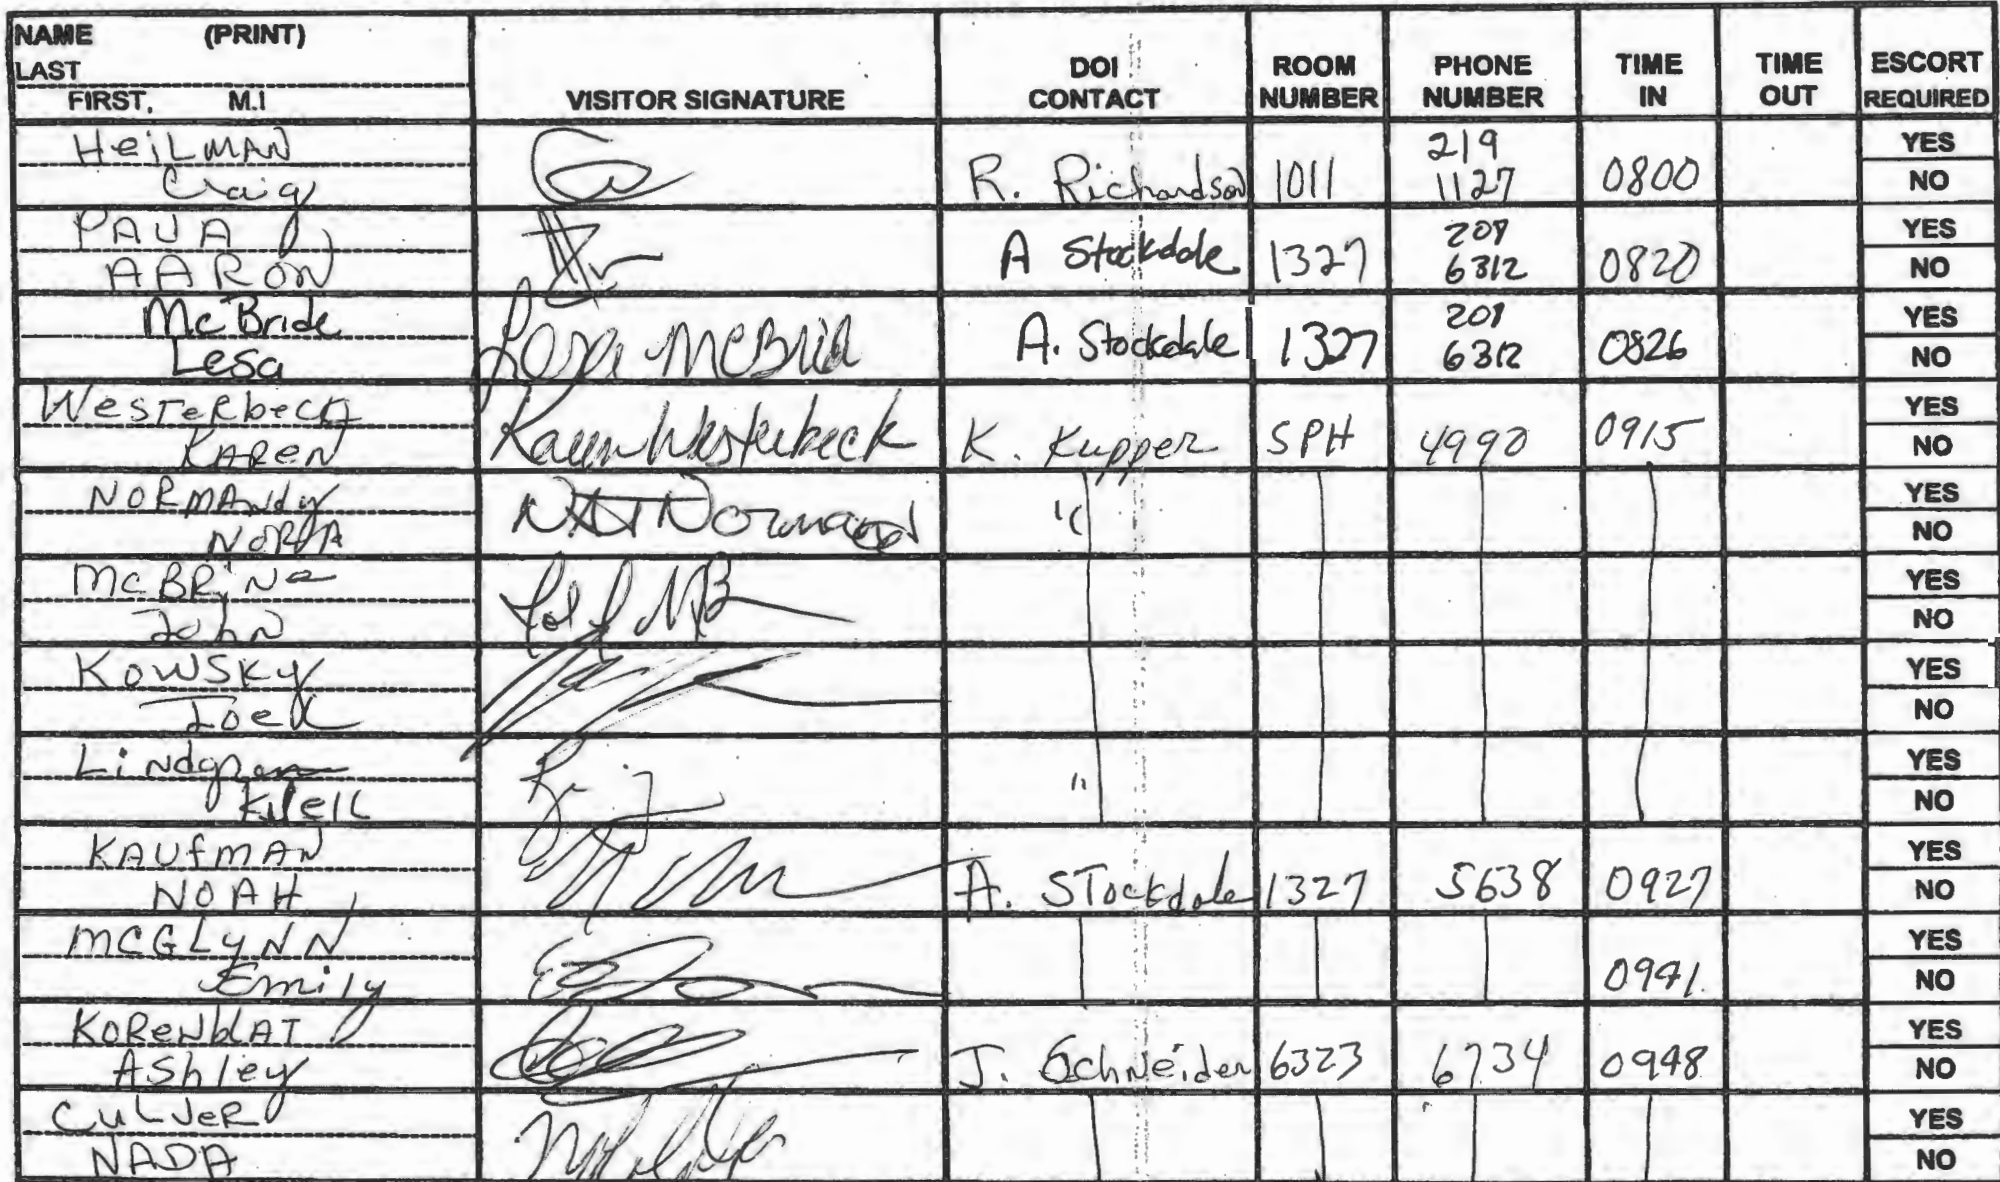 NAME (PRINT)
LAST
FIRST, M.I
VISITOR SIGNATURE
DOI CONTACT
ROOM NUMBER
PHONE NUMBER
TIME IN
TIME OUT
ESCORT REQUIRED
HeiLMAN
Craig
R. Richardson 1011 219 1127 0800 YES NO
PAUA
AARON
A Stockdale 1327 208 6312 0820 YES NO
McBride
Lesa
Lesa McBrid
A. Stockdale 1327 208 6312 0826 YES NO
Westerbeck
KAREN
Karen Westerbeck
K. Kupper SPH 4990 0915 YES NO
NORMANdy
NORA
" YES NO
McBRiNe
John
YES NO
KOWSKY
Joel
YES NO
Lindgren
" YES NO
KAUfMAN
NOAH
A. STockdale 1327 5638 0927 YES NO
MCGLyNN
Emily
0941 YES NO
KOReNblAT
AShley
J. SchNeider 6323 6734 0948 YES NO
CuLVeR
NADA
YES NO